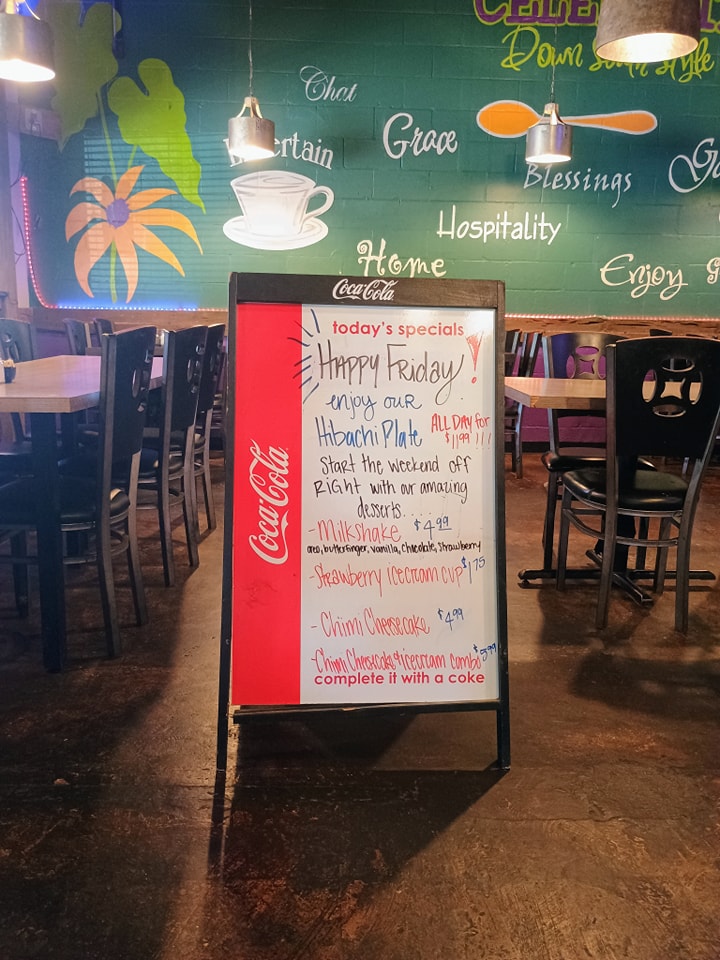 CELE
Down South Style
Chat
Grace
Entertain
Blessings
Hospitality
Home
Enjoy
Coca-Cola
Coca-Cola
today's specials
Happy Friday!
enjoy our
Hibachi Plate ALL DAY for
$11.99!!!
Start the weekend off
Right with our amazing
desserts....
-Milkshake $4.99
oreo, butterfinger, vanilla, chocolate, strawberry
-Strawberry icecream cup $1.75
-Chimi Cheesecake $4.99
-Chimi Cheesecake & icecream combo $5.99
complete it with a coke